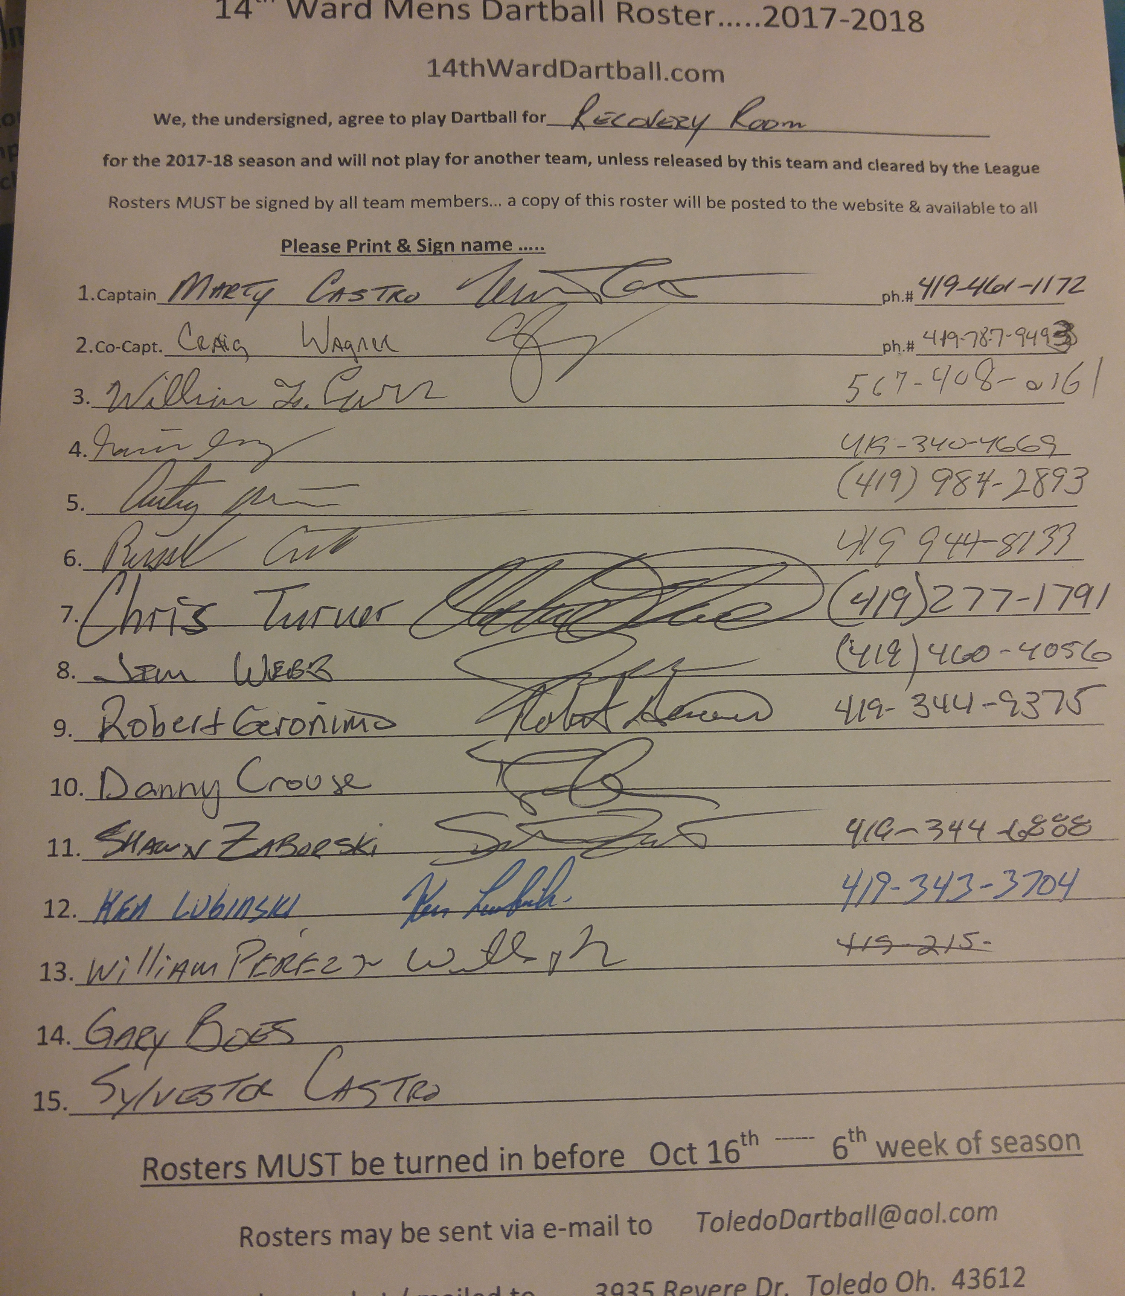 14th Ward Mens Dartball Roster.....2017-2018
14thWardDartball.com
We, the undersigned, agree to play Dartball for Recovery Room
for the 2017-18 season and will not play for another team, unless released by this team and cleared by the League
Rosters MUST be signed by all team members... a copy of this roster will be posted to the website & available to all
Please Print & Sign name .....
1.Captain Marty Castro ph.# 419-461-1172
2.Co-Capt. Craig Wagner ph.# 419-787-9493
3. William 567-408-0161
4. 419-340-4669
5. (419) 984-2893
6. 419 944-8133
7. Chris Turner (419)277-1791
8. Jim Webb (419)460-4056
9. Robert Geronimo Robert 419-344-9375
10. Danny Crouse
11. Shawn Zaborski 419-344-6888
12. Ken Lubinski Ken Lubinski 419-343-3704
13. William Perez 419-215-
14. Gary Boes
15. Sylvester Castro
Rosters MUST be turned in before Oct 16th ----- 6th week of season
Rosters may be sent via e-mail to ToledoDartball@aol.com
mailed to 3935 Revere Dr. Toledo Oh. 43612